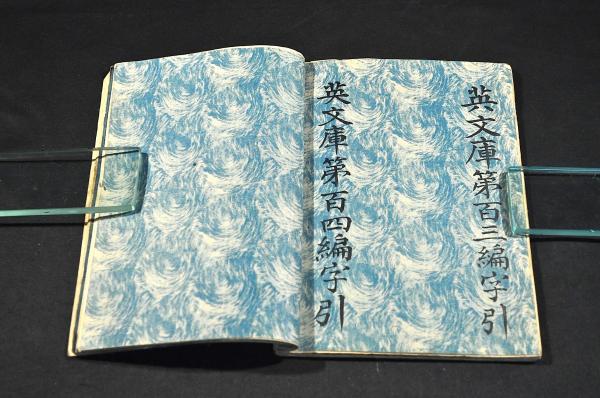 英文庫第百三編字引
英文庫第百四編字引